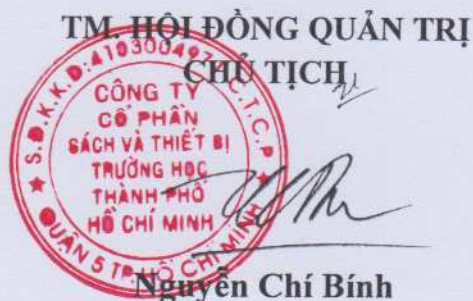 TM. HỘI ĐỒNG QUẢN TRỊ
CHỦ TỊCH
S.Đ.K.K.D:4103004971-C.T.C.P
CÔNG TY
CỔ PHẦN
SÁCH VÀ THIẾT BỊ
TRƯỜNG HỌC
THÀNH PHỐ
HỒ CHÍ MINH
QUẬN 5 TP. HỒ CHÍ MINH
Nguyễn Chí Bính